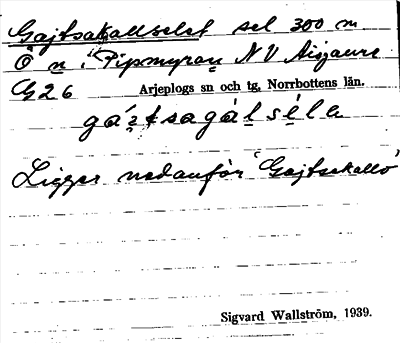 Gajtsakallselet sel 300 m
Ö n. "Pipmyran N V Aisjaure
G26 Arjeplogs sn och tg, Norrbottens län.
gáǯtsagàl sélα
Ligger nedanför "Gajtsekallo"
Sigvard Wallström, 1939.